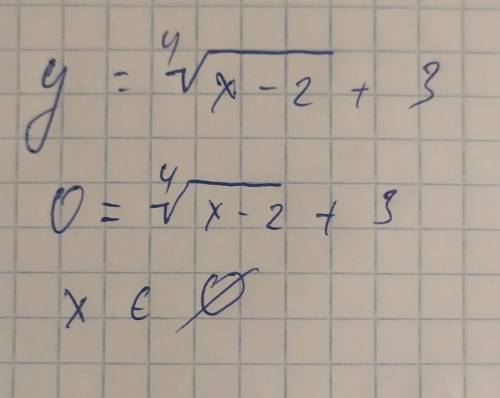 y = ⁴√(x - 2) + 3
0 = ⁴√(x - 2) + 3
x ∈ ∅